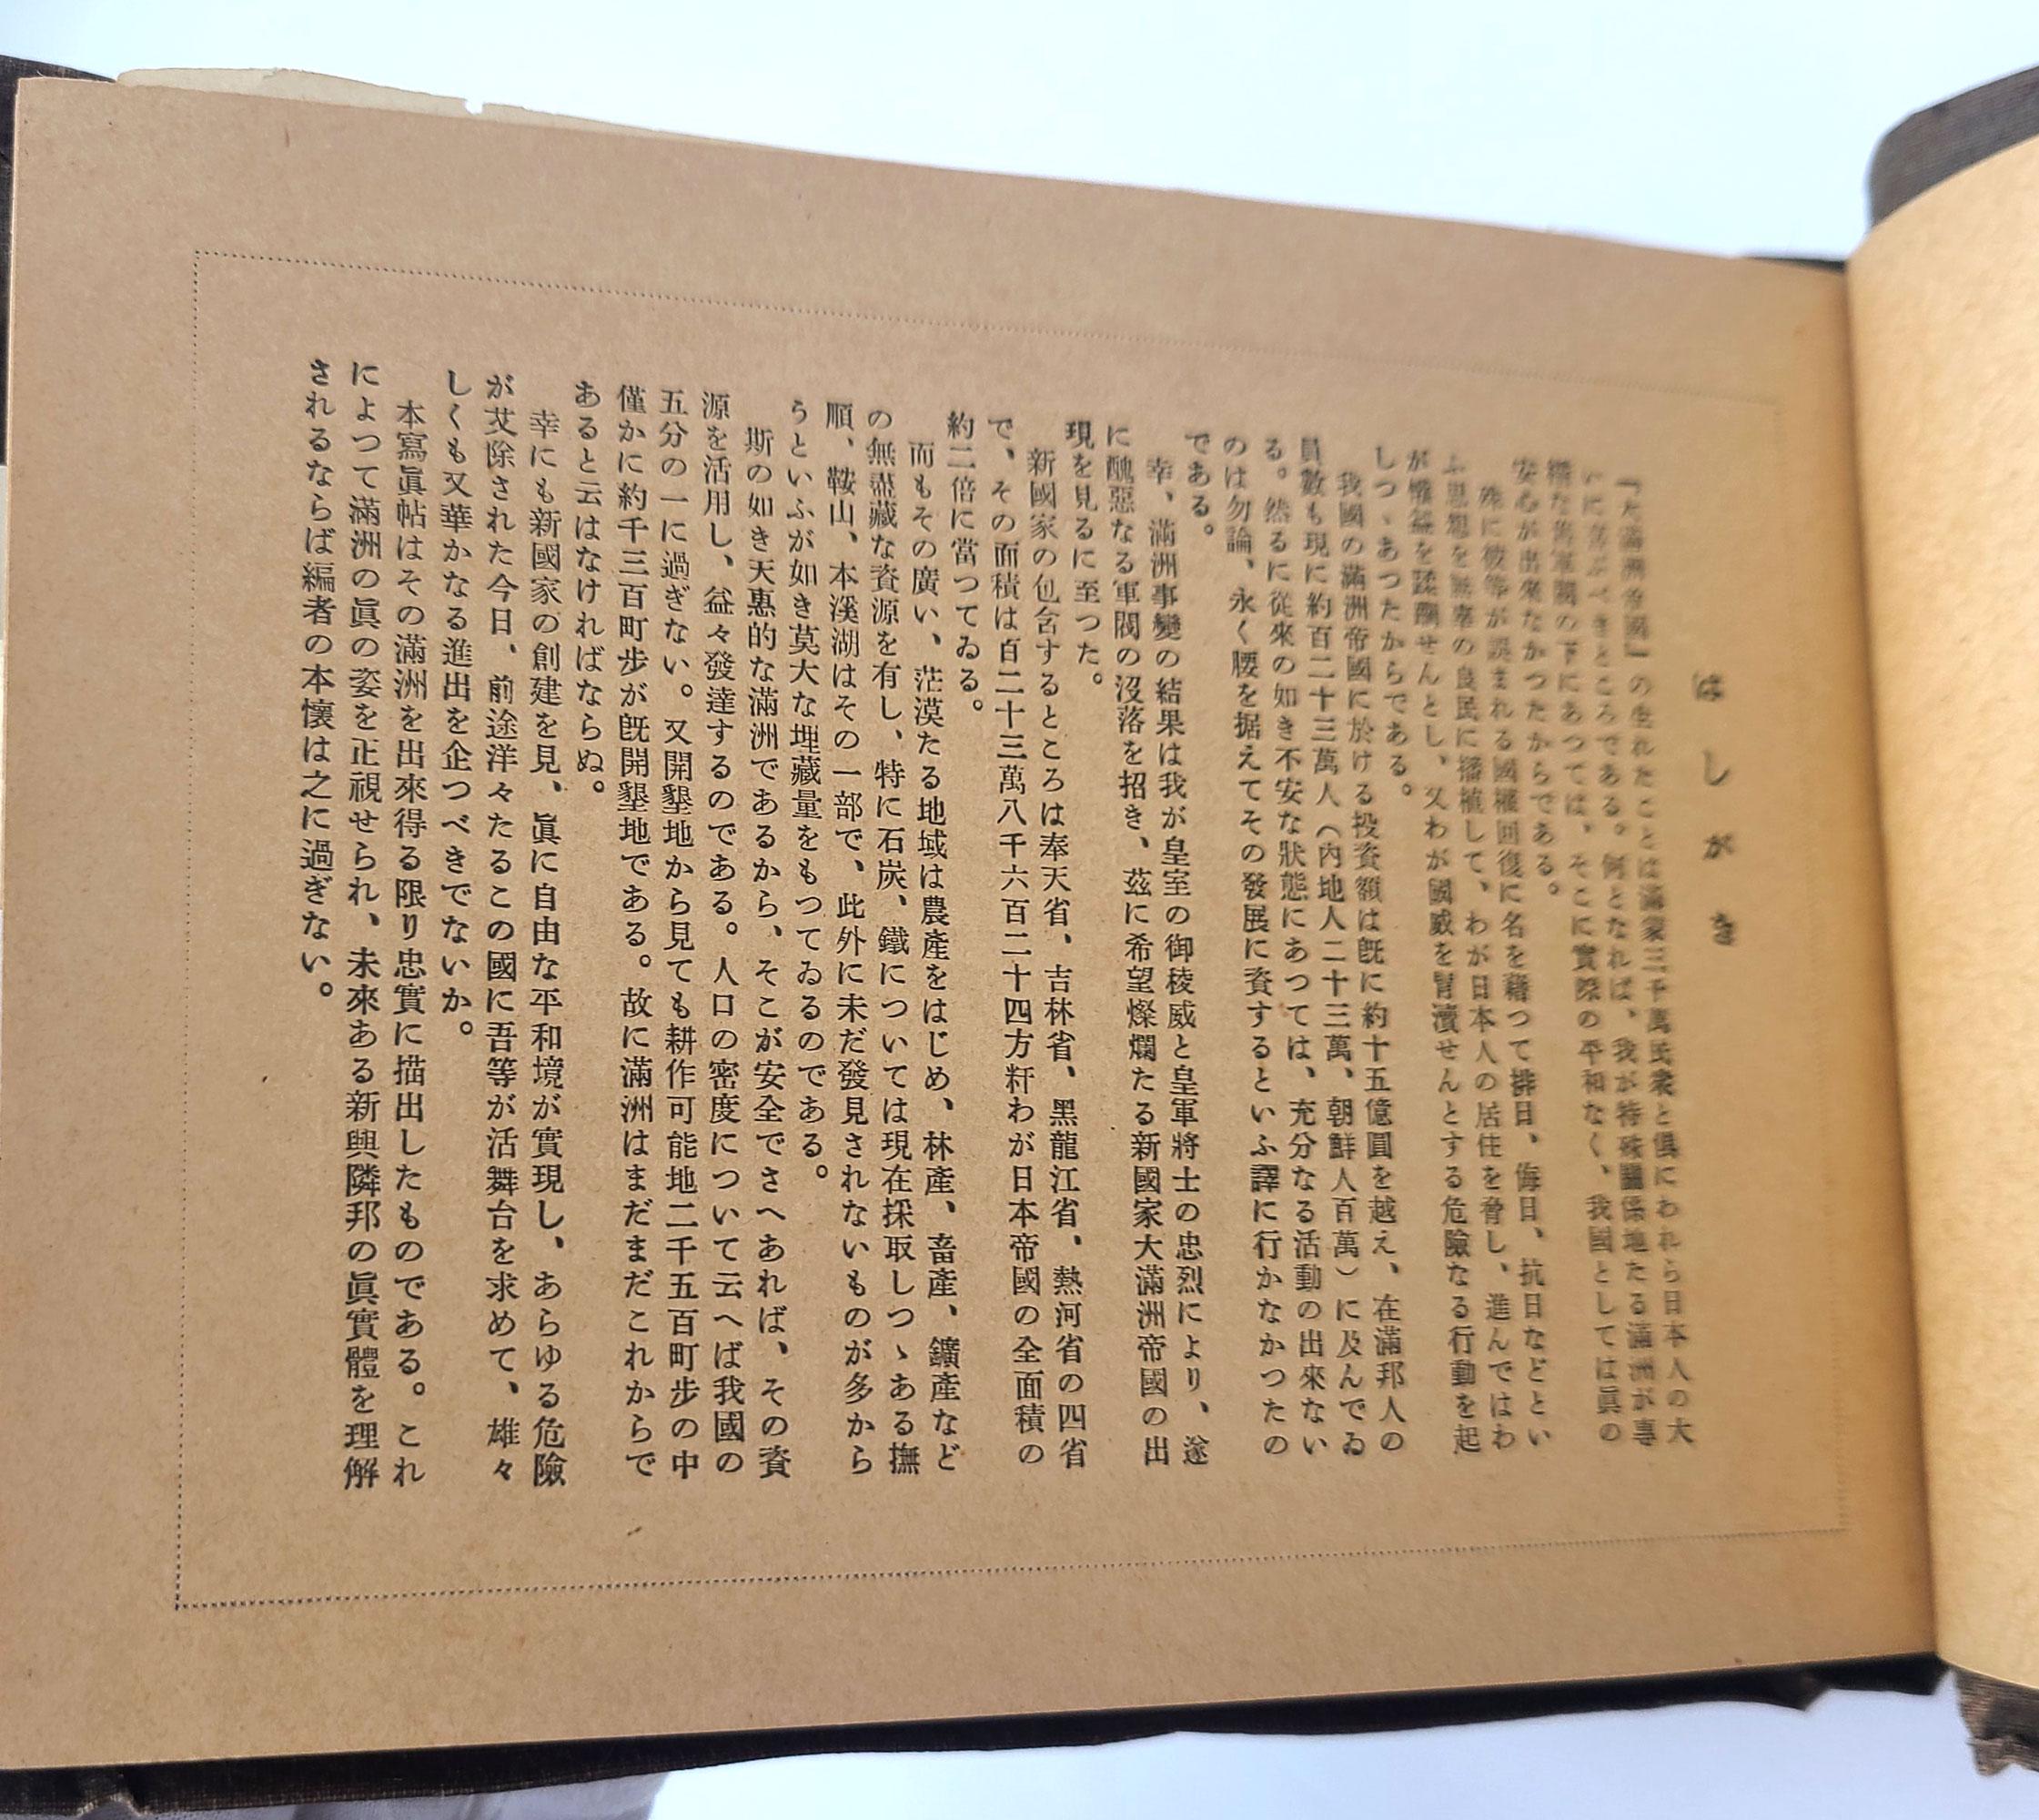 はしがき
『大滿洲帝國』の生れたことは滿蒙三千萬民衆と俱にわれら日本人の大
いに喜ぶべきところである。何となれば、我が特殊關係地たる滿洲が專
橫な舊軍閥の下にあつては、そこに實際の平和なく、我國としては眞の
安心が出來なかつたからである。
殊に彼等が誤まれる國權回復に名を藉つて排日、侮日、抗日などとい
ふ思想を無辜の良民に播植して、わが日本人の居住を脅し、進んではわ
が權益を蹂躙せんとし、又わが國威を冒瀆せんとする危險なる行動を起
しつゝあつたからである。
我國の滿洲帝國に於ける投資額は旣に約十五億圓を越え、在滿邦人の
員數も現に約百二十三萬人（內地人二十三萬、朝鮮人百萬）に及んでゐ
る。然るに從來の如き不安な狀態にあつては、充分なる活動の出來ない
のは勿論、永く腰を据えてその發展に資するといふ譯に行かなかつたの
である。
幸、滿洲事變の結果は我が皇室の御稜威と皇軍將士の忠烈により、遂
に醜惡なる軍閥の沒落を招き、茲に希望燦爛たる新國家大滿洲帝國の出
現を見るに至つた。
新國家の包含するところは奉天省、吉林省、黑龍江省、熱河省の四省
で、その面積は百二十三萬八千六百二十四方粁わが日本帝國の全面積の
約二倍に當つてゐる。
而もその廣い、茫漠たる地域は農產をはじめ、林產、畜產、鑛產など
の無盡藏な資源を有し、特に石炭、鐵については現在採取しつゝある撫
順、鞍山、本溪湖はその一部で、此外に未だ發見されないものが多から
うといふが如き莫大な埋藏量をもつてゐるのである。
斯の如き天惠的な滿洲であるから、そこが安全でさへあれば、その資
源を活用し、益々發達するのである。人口の密度について云へば我國の
五分の一に過ぎない。又開墾地から見ても耕作可能地二千五百町步の中
僅かに約千三百町步が旣開墾地である。故に滿洲はまだまだこれからで
あると云はなければならぬ。
幸にも新國家の創建を見、眞に自由な平和境が實現し、あらゆる危險
が芟除された今日、前途洋々たるこの國に吾等が活舞台を求めて、雄々
しくも又華かなる進出を企つべきでないか。
本寫眞帖はその滿洲を出來得る限り忠實に描出したものである。これ
によつて滿洲の眞の姿を正視せられ、未來ある新興隣邦の眞實體を理解
されるならば編者の本懷は之に過ぎない。